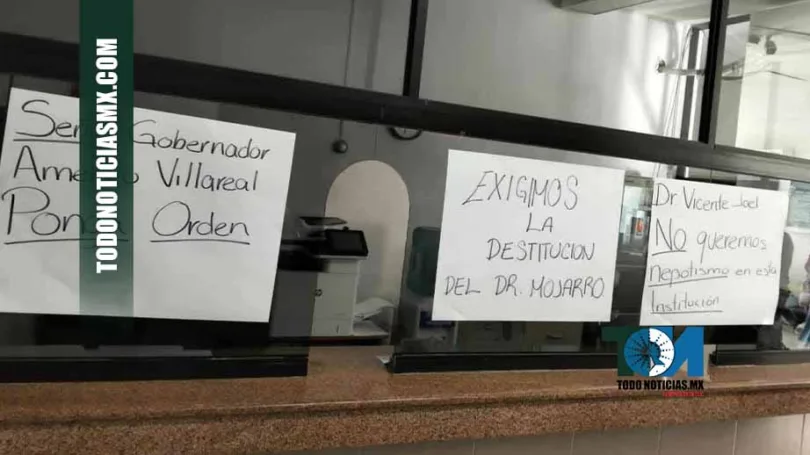 TODONOTICIASMX.COM
Gobernador
Villareal
Orden
EXIGIMOS
LA
DESTITUCION
DEL DR. MOJARRO
Dr Vicente Joel
NO queremos
nepotismo en esta
Institución
TODO NOTICIAS.MX